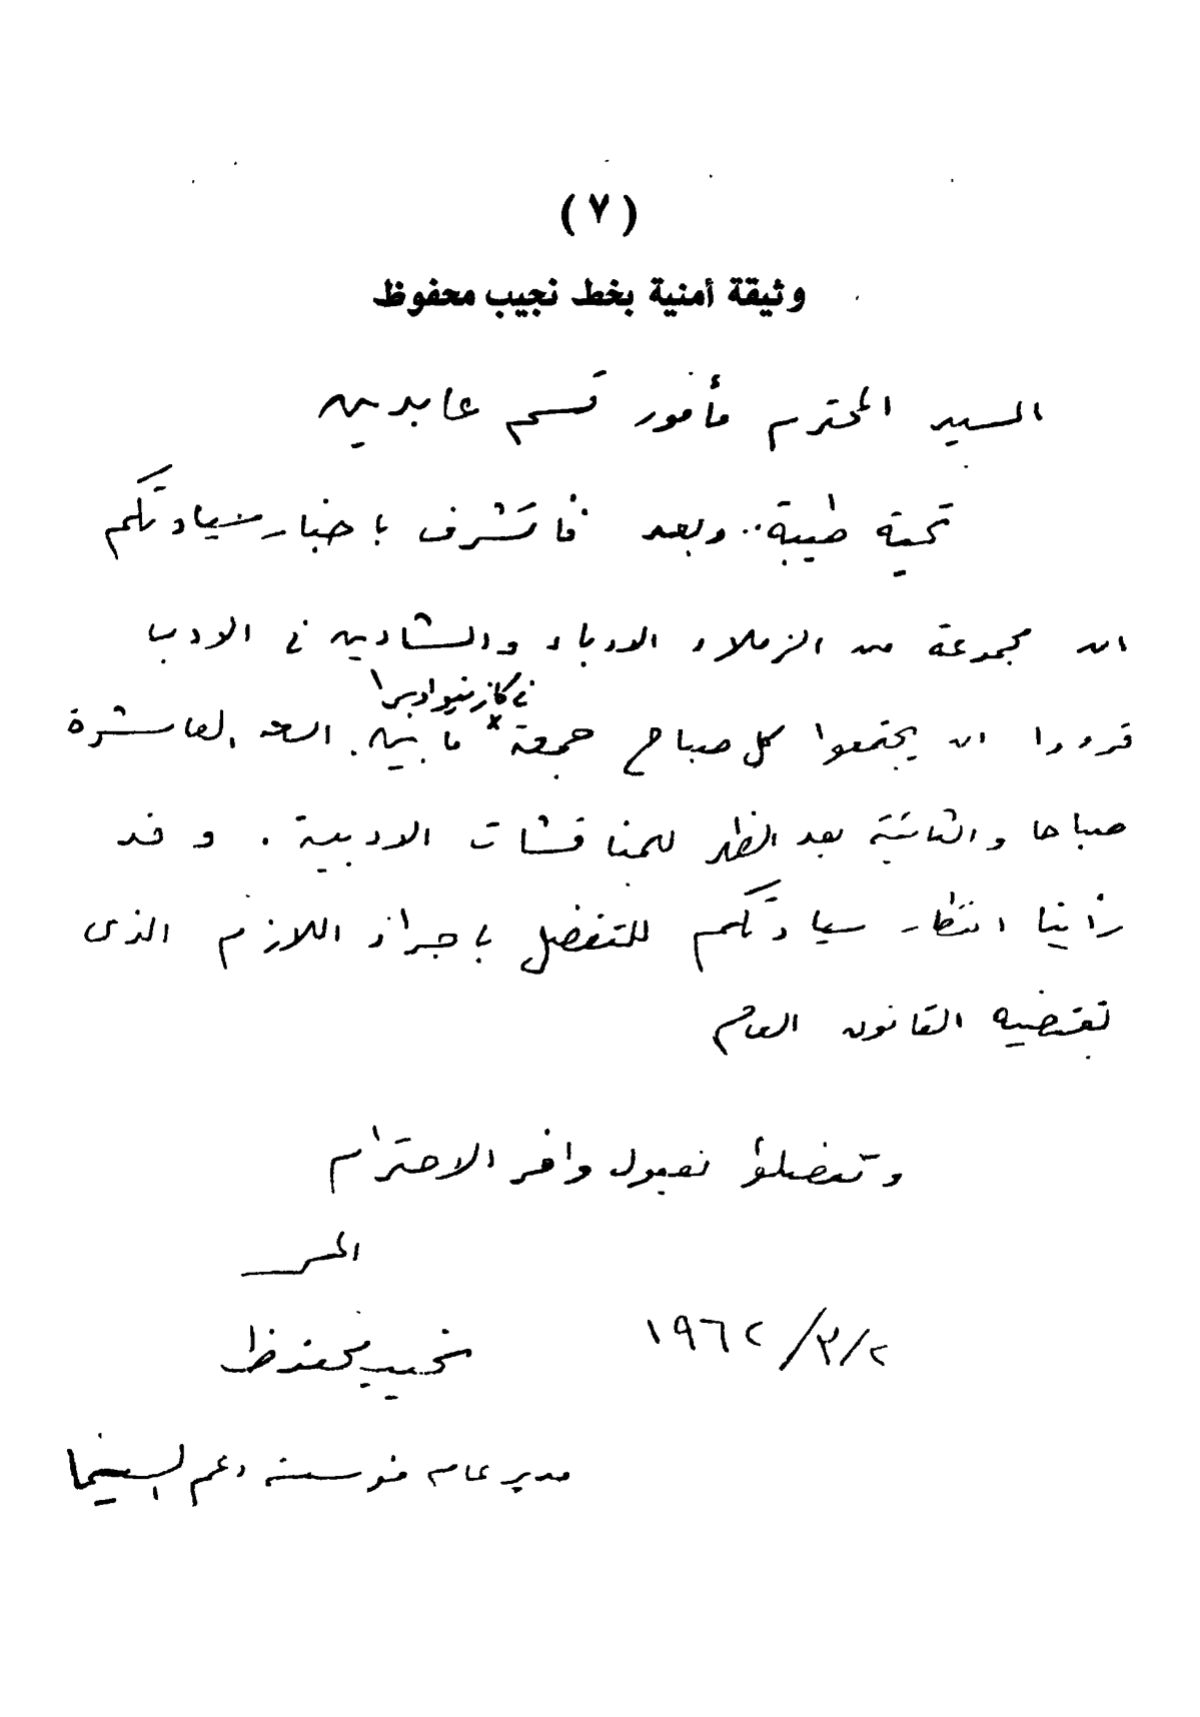 (٧)
وثيقة أمنية بخط نجيب محفوظ
السيد المحترم مأمور قسم عابدين
تحية طيبة.. وبعد فأتشرف باخبار سيادتكم
ان مجموعة من الزملاء الادباء والشادين فى الادب
فى كازينو اوبرا
قرروا ان يجتمعوا كل صباح جمعة × ما بين الساعة العاشرة
صباحا والثانية بعد الظهر للمناقشات الادبية . وقد
رأينا سيادتكم للتفضل باجراء اللازم الذى
يقتضيه القانون العام
وتفضلوا بقبول وافر الاحترام
نجيب محفوظ
٢/٣/١٩٦٢
مدير عام مؤسسة دعم السينما